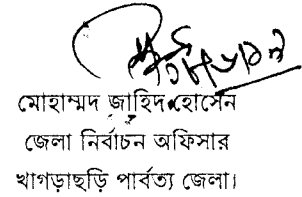 মোহাম্মদ জাহিদ হোসেন
জেলা নির্বাচন অফিসার
খাগড়াছড়ি পার্বত্য জেলা।